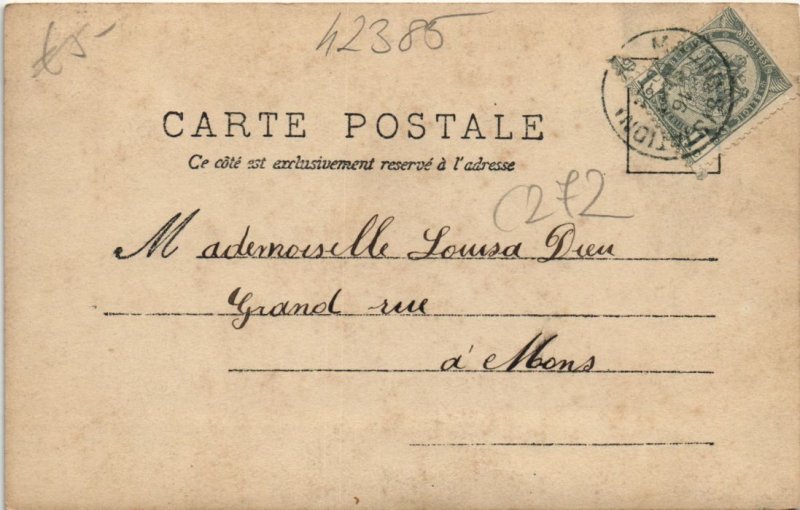 €5-
42385
CARTE POSTALE
Ce côté est exclusivement reservé à l'adresse
C272
Mademoiselle Louisa Dieu
Grand rue
à Mons